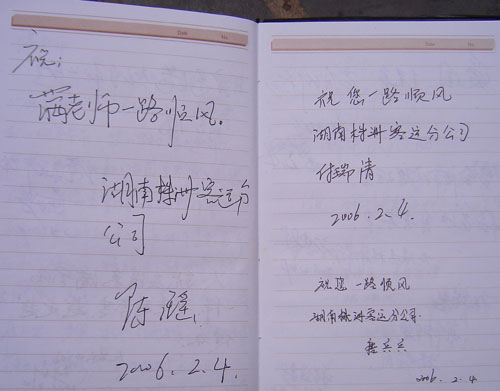 祝:
老师一路顺风.
湖南株洲客运分
公司
陈
2006.2.4.
祝您一路顺风
湖南株洲客运分公司
付瑞清
2006.2.4.
祝您一路顺风
湖南株洲客运分公司.
兵兵
2006.2.4